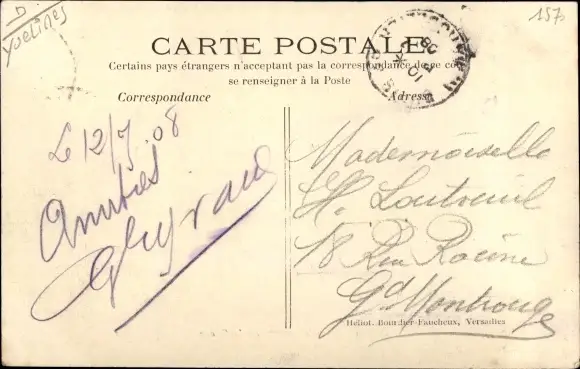 D
Yvelines
157
CARTE POSTALE
Certains pays étrangers n'acceptent pas la correspondance de ce côté
se renseigner à la Poste
Correspondance
Adresse
Le 12/7 08
Amitiés
Mademoiselle
H. Loutreuil
18 Rue Racine
Gd Montrouge
Héliot. Bourdier-Faucheux, Versailles